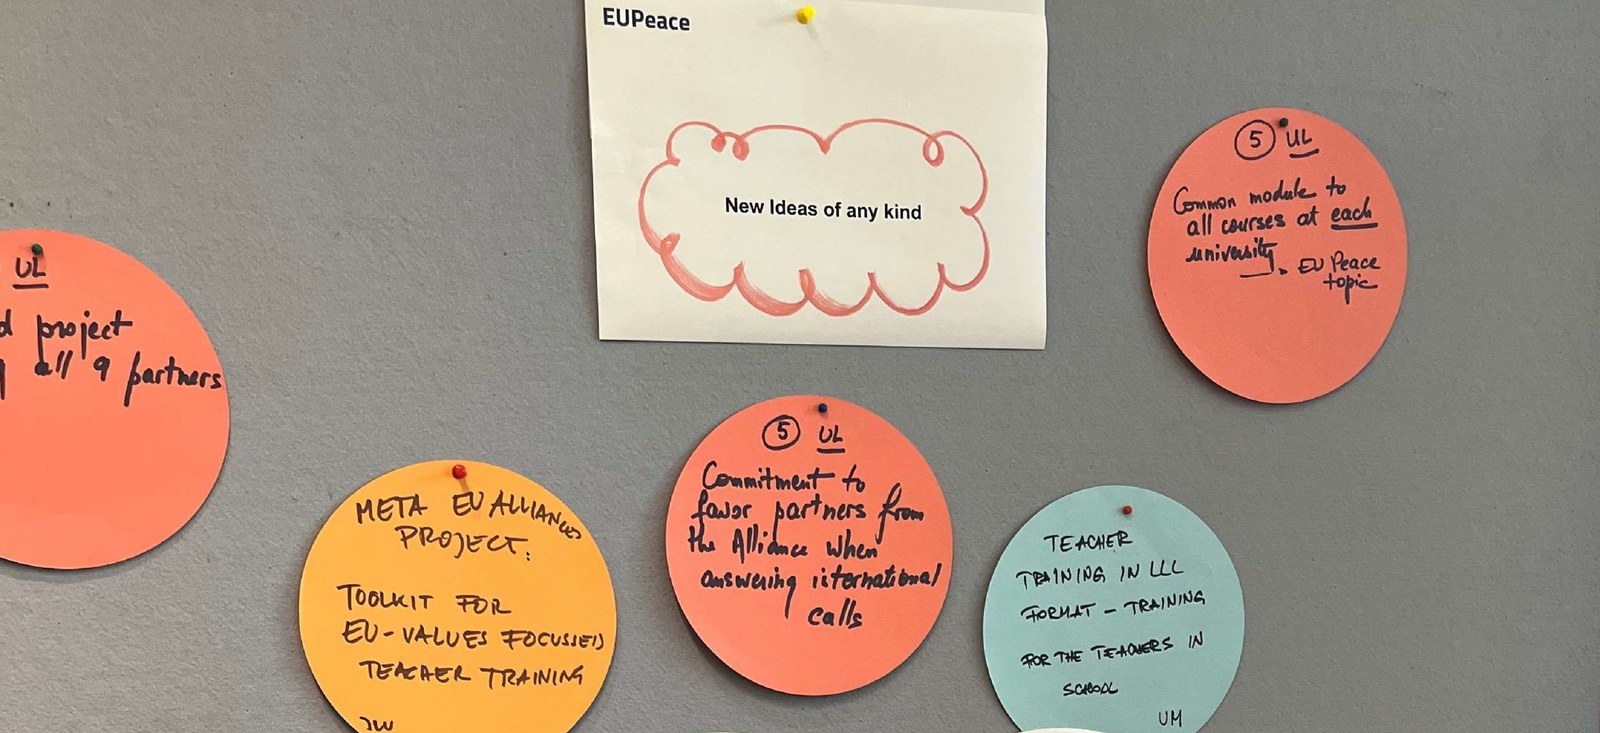 EUPeace
New Ideas of any kind
5 UL
Common module to
all courses at each
university
EU Peace
topic
UL
project
all 9 partners
META EU ALLIANCES
PROJECT:
TOOLKIT FOR
EU-VALUES FOCUSSED
TEACHER TRAINING
5 UL
Commitment to
favor partners from
the Alliance when
answering international
calls
TEACHER
TRAINING IN LLL
FORMAT - TRAINING
FOR THE TEACHERS IN
SCHOOL
UM